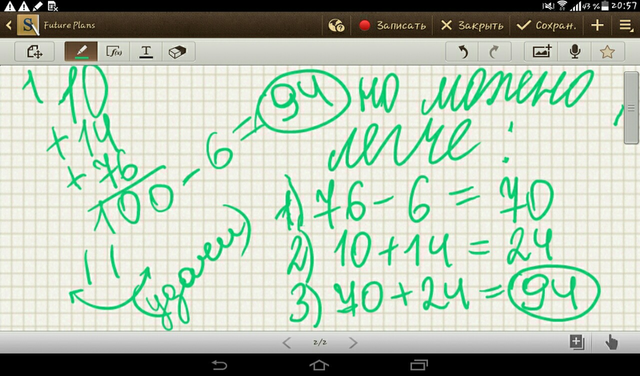 43% 20:57
Future Plans
Записать
Закрыть
Сохран.
f(x)
T
1 10
+ 14
+ 76
100 - 6 = 94
но можно
легче:
1) 76 - 6 = 70
2) 10 + 14 = 24
3) 70 + 24 = 94
(удачи)
2/2